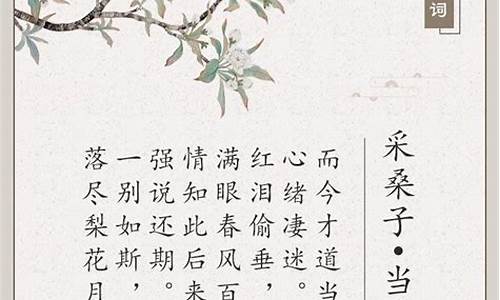 词
采桑子·当
而今才道当
心绪凄迷。
红泪偷垂，
满眼春风百
情知此后来
强说还期。
一别如斯，
落尽梨花月